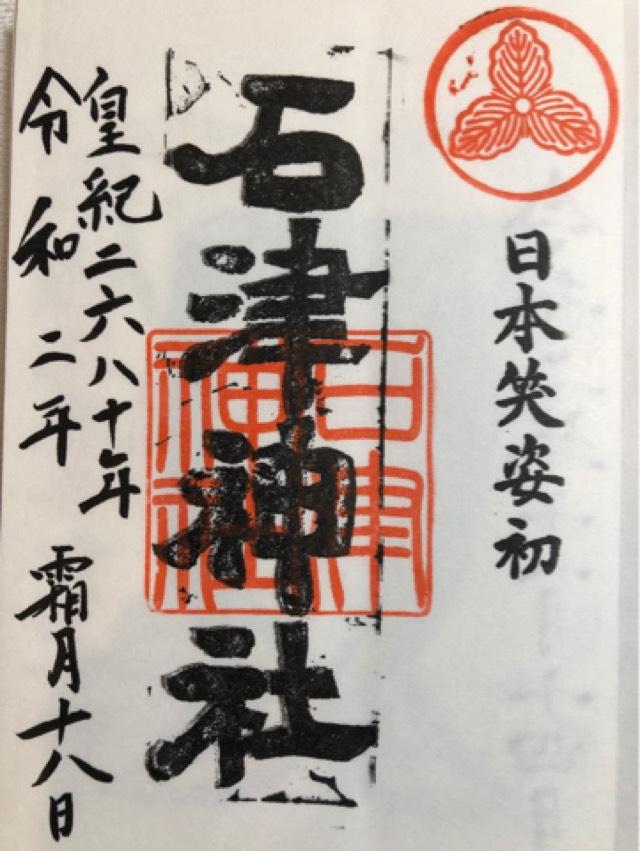 日本笑姿初
石津神社
石津
神社
皇紀二六八十年
令和二年 霜月十八日